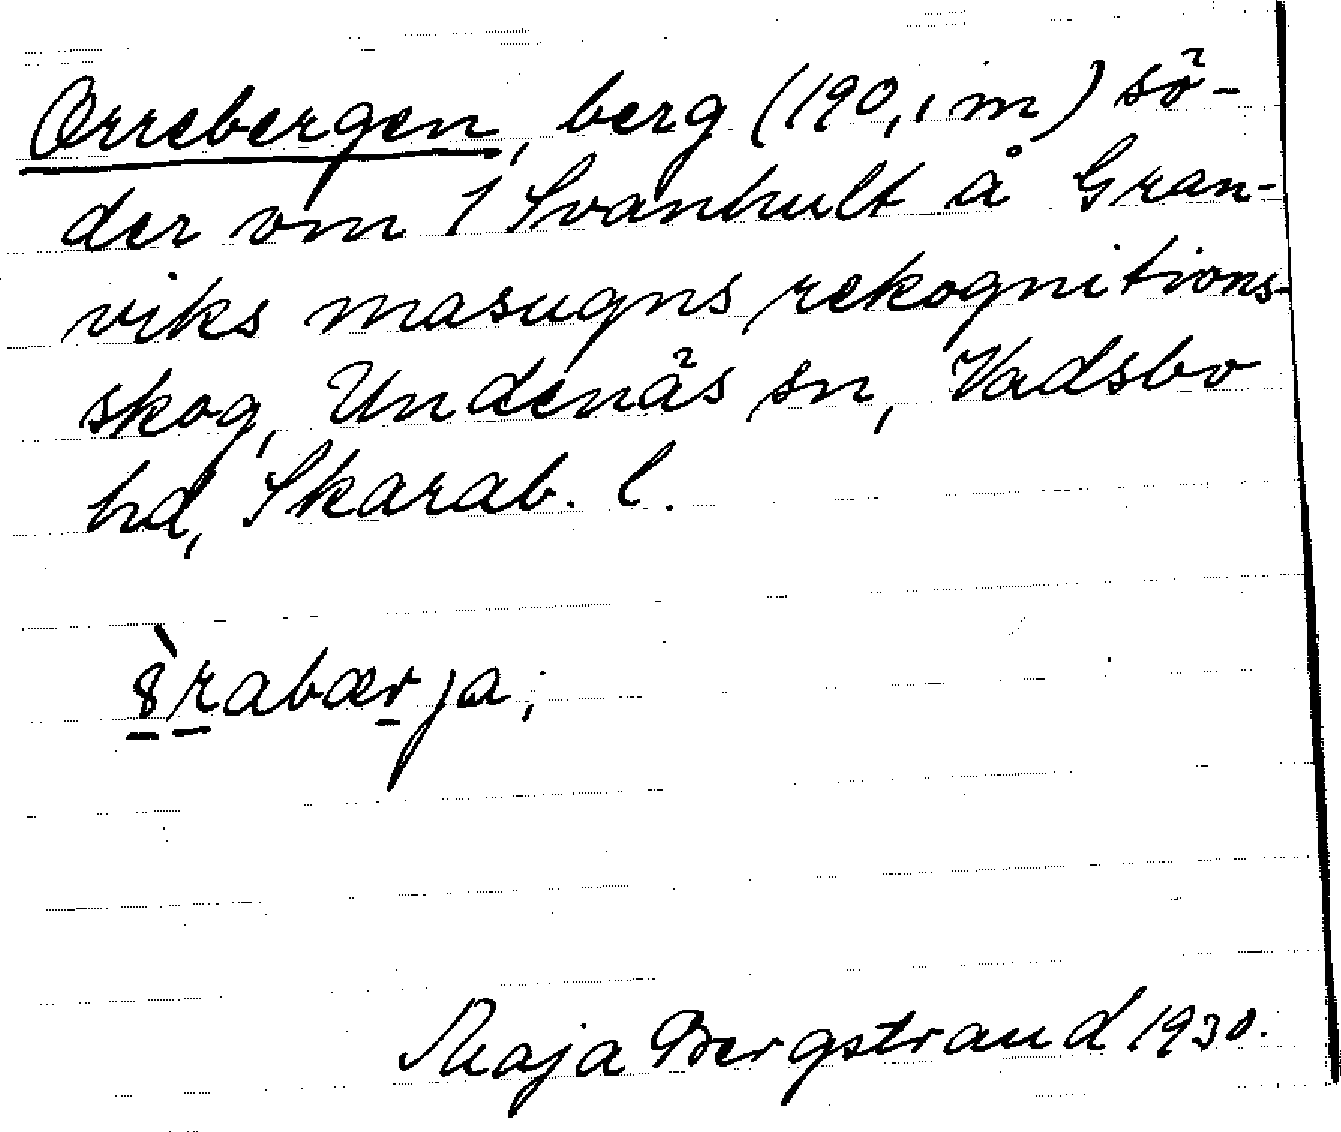 Orrebergen, berg (190,1 m) sö-
der om 1 Svanhult å Gran-
viks masugns rekognitions-
skog, Undenäs sn, Vadsbo
hd, Skarab. l.
8̀rabærja;
Maja Bergstrand 1930.